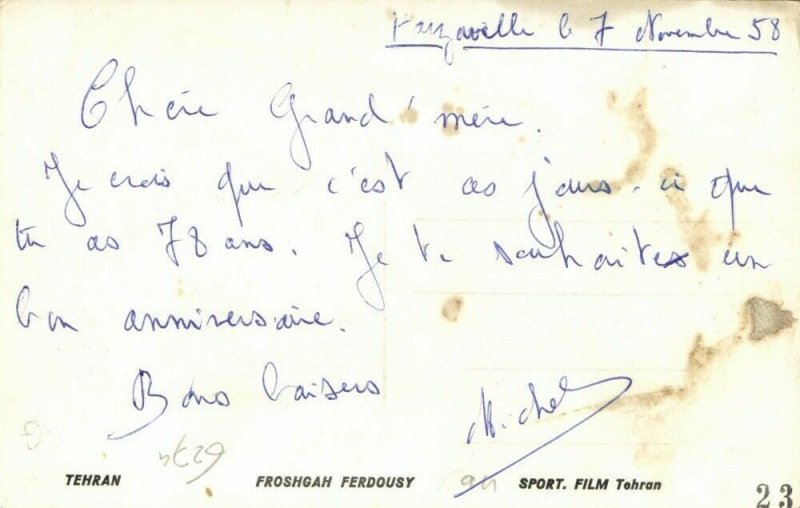 le 7 Novembre 58
Chère Grand'mère.
Je crois que c'est ces jours-ci que
tu as 78 ans. Je te souhaite un
bon anniversaire.
Bons baisers
Michel
6274
TEHRAN FROSHGAH FERDOUSY SPORT. FILM Tehran
23